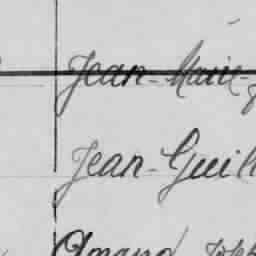 Jean-Marie-
Jean-Guil
Amand